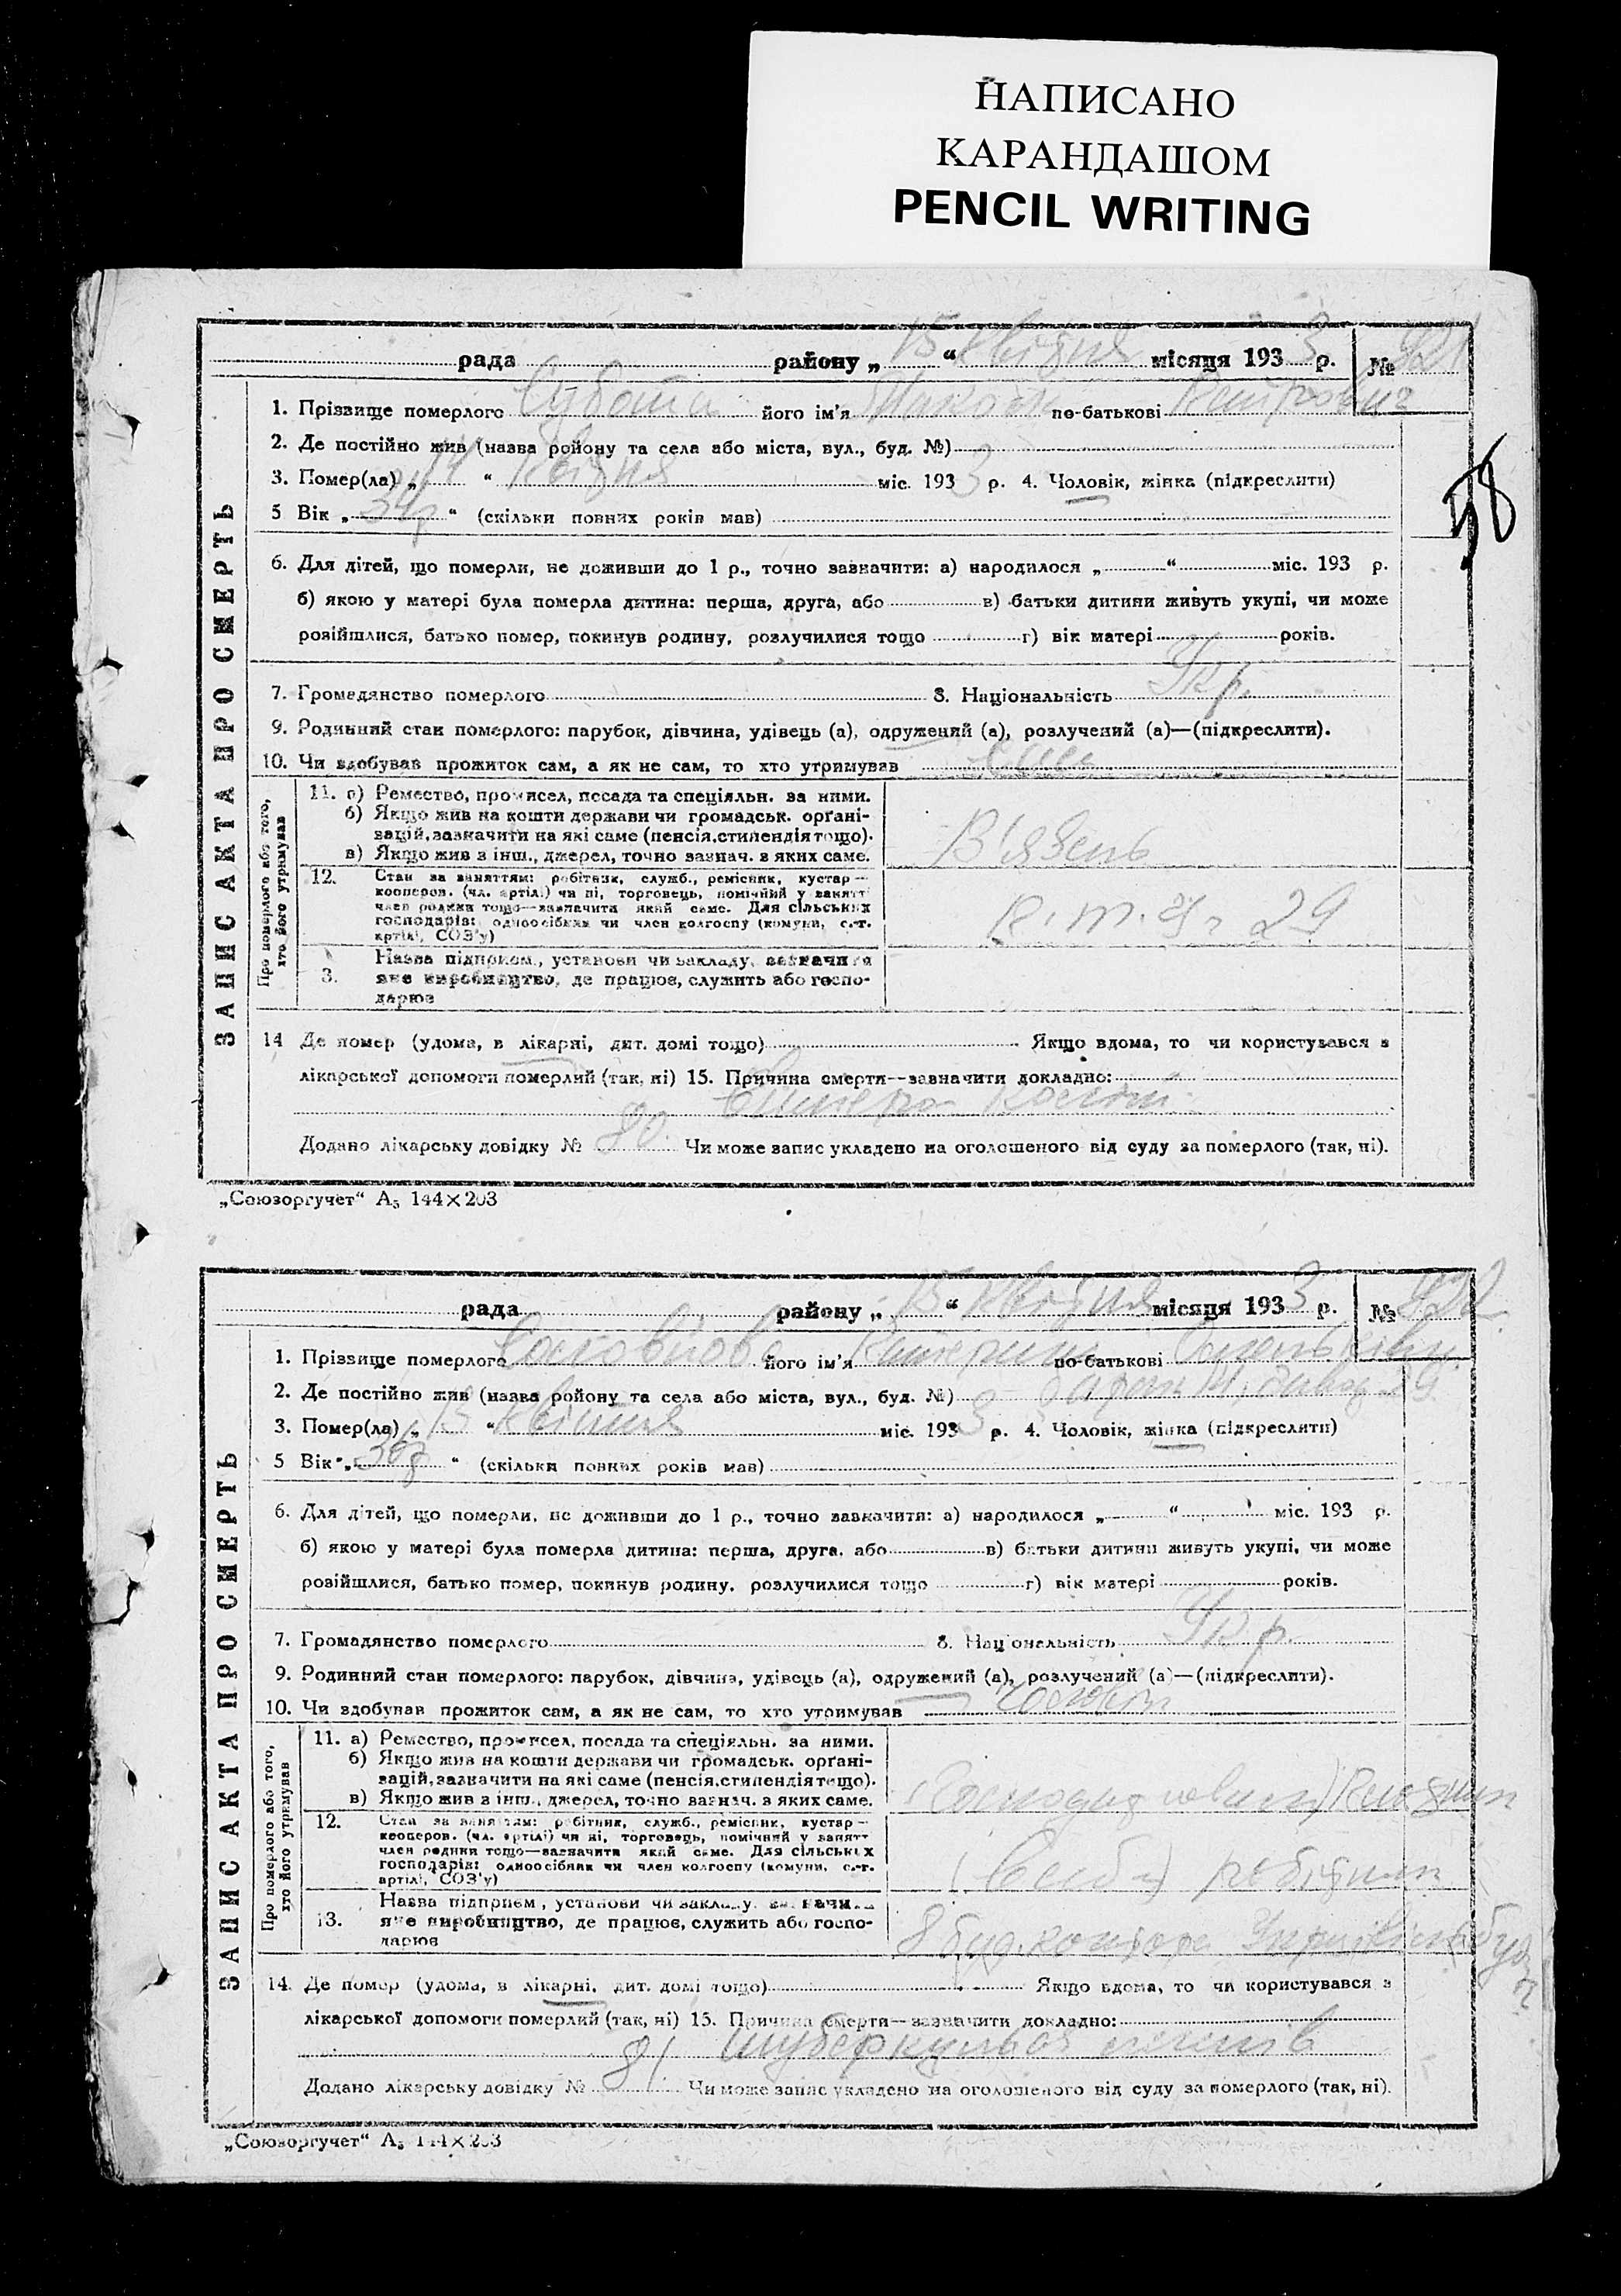 НАПИСАНО
КАРАНДАШОМ
PENCIL WRITING
58
ЗАПИС АКТА ПРО СМЕРТЬ
рада району „ 15 “ Квітня місяця 193 3 р. №
1. Прізвище померлого Субота його ім'я по-батькові Петрович
2. Де постійно жив (назва району та села або міста, вул., буд. №)
3. Помер(ла) „ 14 “ Квітня міс. 193 3 р. 4. Чоловік, жінка (підкреслити)
5 Вік „ “ (скільки повних років мав)
6. Для дітей, що померли, не доживши до 1 р., точно зазначити: а) народилося „ “ міс. 193 р.
б) якою у матері була померла дитина: перша, друга, або в) батьки дитини живуть укупі, чи може
розійшлися, батько помер, покинув родину, розлучилися тощо г) вік матері років.
7. Громадянство померлого 8. Національність Укр.
9. Родинний стан померлого: парубок, дівчина, удівець (а), одружений (а), розлучений (а)—(підкреслити).
10. Чи здобував прожиток сам, а як не сам, то хто утримував
Про померлого або того,
хто його утримував
11. а) Ремество, промисел, посада та спеціяльн. за ними.
б) Якщо жив на кошти держави чи громадськ. орґані-
зацій, зазначити на які саме (пенсія, стипендія тощо).
в) Якщо жив з інш., джерел, точно зазнач. з яких саме.
В'язень
12. Стан за заняттям: робітник, служб., ремісник, кустар—
кооперов. (чл. артілі) чи ні, торговець, помічний у занятті
член родини тощо—зазначити який саме. Для сільських
господарів: одноосібник чи член колгоспу (комуни, с.-г.
артілі, СОЗ'у)
29
3. Назва підприєм., установи чи закладу, зазначити
яке виробництво, де працює, служить або госпо-
дарює
14 Де помер (удома, в лікарні, дит. домі тощо) Якщо вдома, то чи користувався з
лікарської допомоги померлий (так, ні) 15. Причина смерти—зазначити докладно:
Додано лікарську довідку № 80. Чи може запис укладено на оголошеного від суду за померлого (так, ні).
„Союзоргучет“ А₅ 144×203
ЗАПИС АКТА ПРО СМЕРТЬ
рада району „ 15 “ Квітня місяця 193 3 р. №
1. Прізвище померлого його ім'я по-батькові
2. Де постійно жив (назва району та села або міста, вул., буд. №)
3. Помер(ла) „ “ Квітня міс. 193 3 р. 4. Чоловік, жінка (підкреслити)
5 Вік „ “ (скільки повних років мав)
6. Для дітей, що померли, не доживши до 1 р., точно зазначити: а) народилося „ “ міс. 193 р.
б) якою у матері була померла дитина: перша, друга, або в) батьки дитини живуть укупі, чи може
розійшлися, батько помер, покинув родину, розлучилися тощо г) вік матері років.
7. Громадянство померлого 8. Національність Укр.
9. Родинний стан померлого: парубок, дівчина, удівець (а), одружений (а), розлучений (а)—(підкреслити).
10. Чи здобував прожиток сам, а як не сам, то хто утримував Чоловік
Про померлого або того,
хто його утримував
11. а) Ремество, промисел, посада та спеціяльн. за ними.
б) Якщо жив на кошти держави чи громадськ. орґані-
зацій, зазначити на які саме (пенсія, стипендія тощо).
в) Якщо жив з інш., джерел, точно зазнач. з яких саме.
12. Стан за заняттям: робітник, служб., ремісник, кустар—
кооперов. (чл. артілі) чи ні, торговець, помічний у занятті
член родини тощо—зазначити який саме. Для сільських
господарів: одноосібник чи член колгоспу (комуни, с.-г.
артілі, СОЗ'у)
робітник
13. Назва підприєм., установи чи закладу, зазначити
яке виробництво, де працює, служить або госпо-
дарює
8 буд. контора
14. Де помер (удома, в лікарні, дит. домі тощо) Якщо вдома, то чи користувався з
лікарської допомоги померлий (так, ні) 15. Причина смерти—зазначити докладно:
туберкульоз легенів
Додано лікарську довідку № 81. Чи може запис укладено на оголошеного від суду за померлого (так, ні).
„Союзоргучет“ А₅ 144×203